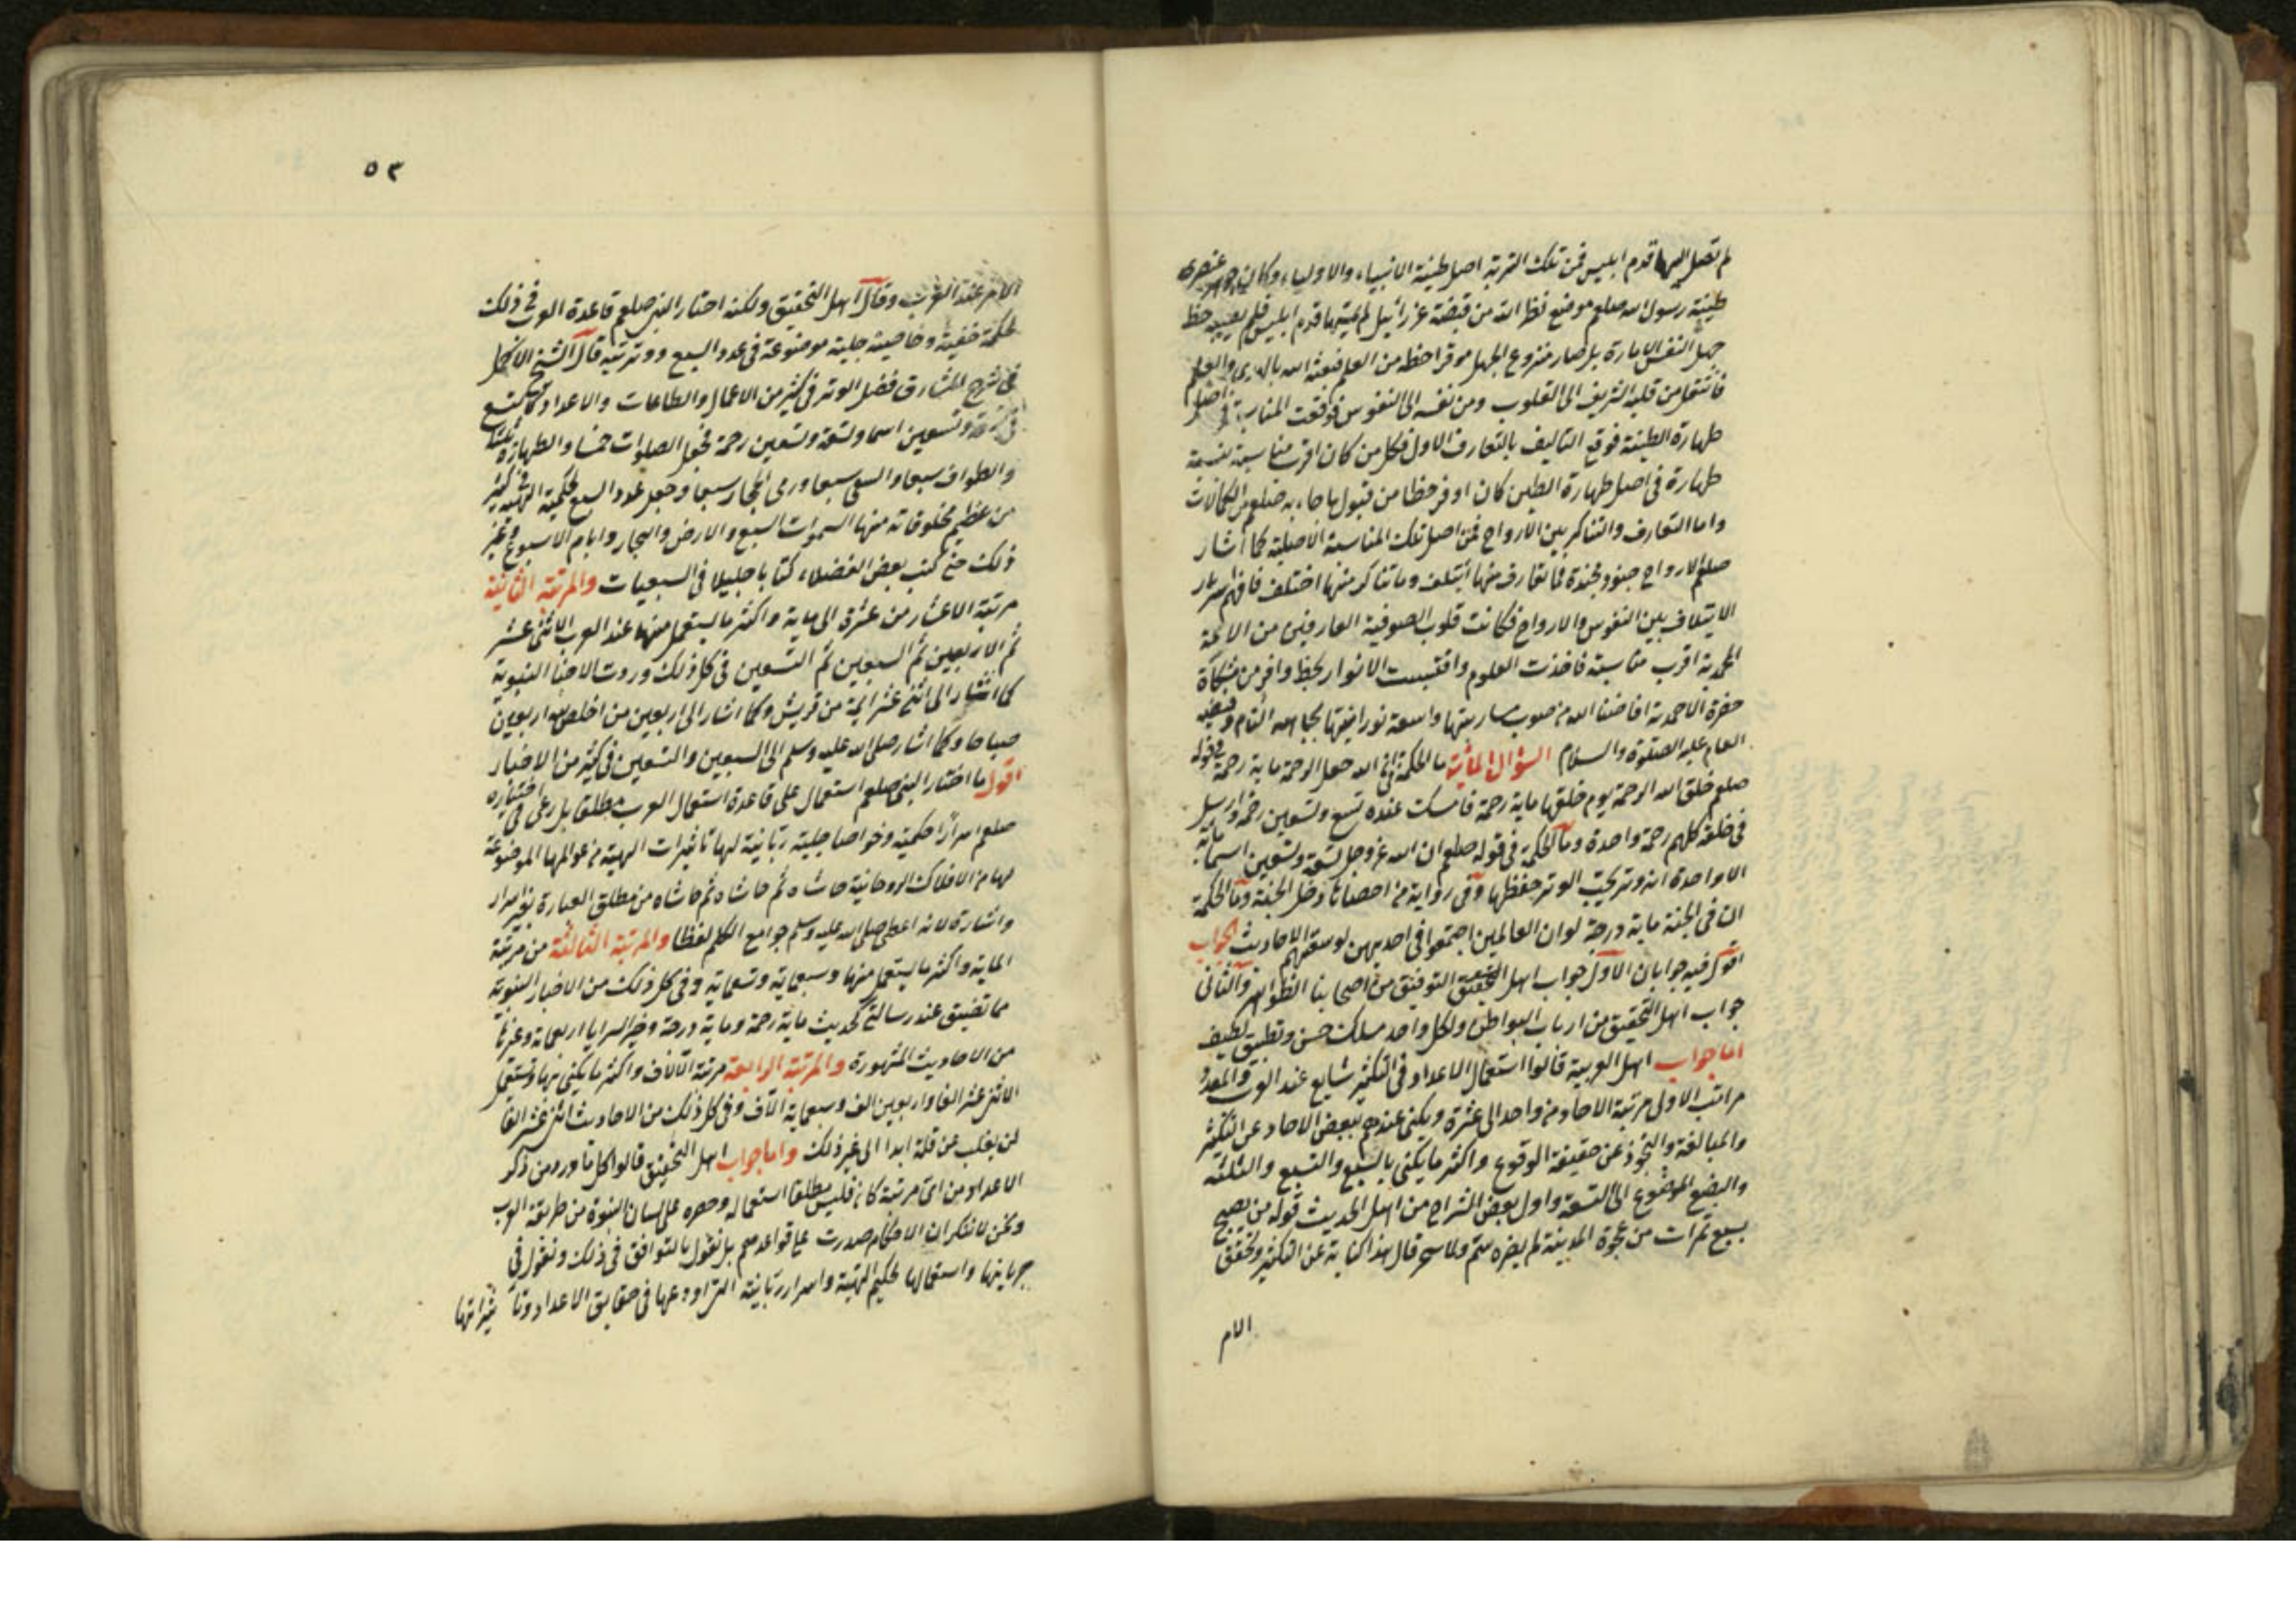 لم تصل اليها قدم ابليس فمن تلك التربة اصل طينة الانبياء والاولياء وكان جوهر عنصرى
طينة رسول الله صلعم موضع نظر الله من قبضة عزرائيل لم يمسها قدم ابليس فلم يصيبه حظ
جهل النفس الامارة بل صار منزوع الجهل موفرا حظه من العلم فبعثه الله بالهدى والعلم
فانتقل من قلبه الشريف الى القلوب ومن نفسه الى النفوس فوقعت المناسبة فى اصل
طهارة الطينة فوقع التاليف بالتعارف الاول فكل من كان اقرب مناسبة نسبة
طهارة فى اصل طهارة الطين كان اوفر حظا من قبول ما جاء به صلعم من الكمالات
واما التعارف والتناكر بين الارواح فمن اصل تلك المناسبة الاصلية كما اشار
صلعم الارواح جنود مجندة فما تعارف منها ايتلف وما تناكر منها اختلف فافهم اسرار
الايتلاف بين النفوس والارواح فكانت قلوب الصوفية العارفين من الامة
المحمدية اقرب مناسبة فاخذت العلوم واقتبست الانوار بحظ وافر من مشكاة
حضرة الاحمدية افاضنا الله من صوب مشاربتها واسعة نورانيتها بجاهه التام وفيضه
العام عليه الصلوة والسلام السؤال المائية ما الحكمة فى ان الله جعل الرحمة ماية رحمة فى قوله
صلعم خلق الله الرحمة يوم خلقها ماية رحمة فامسك عنده تسع وتسعين رحمة وارسل
فى خلقه كلهم رحمة واحدة وما الحكمة فى قوله صلعم ان الله عز وجل تسعة وتسعين اسما ماية
الا واحدة انه وتر يحب الوتر من حفظها وفى رواية من احصاها دخل الجنة وما الحكمة
ان فى الجنة ماية درجة لو ان العالمين اجتمعوا فى احديهن لوسعتهم الاحاديث الجواب
اقول فيه جوابان الاول جواب اهل التوفيق من اصحابنا الظواهر والثانى
جواب اهل التحقيق من ارباب البواطن ولكل واحد مسلك حسن وتطبيق لطيف
اما جواب اهل العربية قالوا استعمال الاعداد فى التكثير شايع عند العرب والعدد
مراتب الاولى مرتبة الاحاد من واحد الى عشرة ويكنى عندهم ببعض الاحاد عن التكثير
والمبالغة والتجوز عن حقيقة الوقوع واكثر ما يكنى بالسبع والتسع والثلثه
والبضع الموضوع الى التسعة واول بعض الشراح من اهل الحديث قوله من يصبح
بسبع تمرات من عجوة المدينة لم يضره سم ولا سحر قال هذا كناية عن التكثير وتحقق
الام
٥٣
الامر عند العرب وقال اهل التحقيق ولكنه اختار النبى صلعم قاعدة العرب فى ذلك
لحكمة خفية وخاصية جلية موضوعة فى عدد السبع ووتريته قال الشيخ الاكمل
فى شرح المشارق فضل الوتر فى كثير من الاعمال والطاعات والاعداد كما تسع
وتسعين اسما وتسعة وتسعين رحمة فجعل الصلوات خمسا والطهارة ثلثا
والطواف سبعا والسعى سبعا ورمى الجمار سبعا وجعل عدد السبع لحكمة الهية فى كثير
من عظيم مخلوقاته منها السموات السبع والارض والبحار وايام الاسبوع وغير
ذلك حتى كتب بعض الفضلاء كتابا جليلا فى السبعيات والمرتبة الثانية
مرتبة الاعشار من عشرة الى ماية واكثر ما يستعمل منها عند العرب الاثنى عشر
ثم الاربعين ثم السبعين ثم التسعين فى كل ذلك وردت الاخبار النبوية
كما اشار الى اثنى عشر ايمة من قريش وكما اشار الى اربعين من اخلص لله اربعين
صباحا وكما اشار صلى الله عليه وسلم الى السبعين والتسعين فى كثير من الاخبار
اقول ما اختار النبى صلعم استعمال على قاعدة استعمال العرب مطلقا بل رعى فى اختياره
صلعم اسرارا حكمية وخواصا جلية ربانية لها تاثيرات الهية من عوالمها الموضوعة
لها من الافلاك الروحانية حاشاه ثم حاشاه ثم حاشاه من مطلق العبارة بغير اسرار
واشارة لانه اعطى صلى الله عليه وسلم جوامع الكلم لفظا والمرتبة الثالثة من مرتبة
الماية واكثر ما يستعمل منها وسبعماية وتسعماية وفى كل ذلك من الاخبار النبوية
مما تضيق عند رسالتى كحديث ماية رحمة وماية درجة وخير السرايا اربعماية وغيرها
من الاحاديث المشهورة والمرتبة الرابعة مرتبة الالاف واكثر ما يكنى بها وتستعمل
الاثنى عشر الفا واربعين الف وسبعماية الاف وفى كل ذلك من الاحاديث اثنى عشر الفا
لن يغلب من قلة ابدا الى غير ذلك واما جواب اهل التحقيق قالوا كل ما ورد من ذكر
الاعداد من اى مرتبة كان فليس مطلقا استعماله وحصره على لسان النبوة من طريقة العرب
ونحن لا ننكر ان الاحكام صدرت على قواعدهم بل نقول بالتوافق فى ذلك ونقول فى
جريانها واستعمالها لحكم الهية واسرار ربانية التى اودعها فى حقايق الاعداد وتا ثيراتها